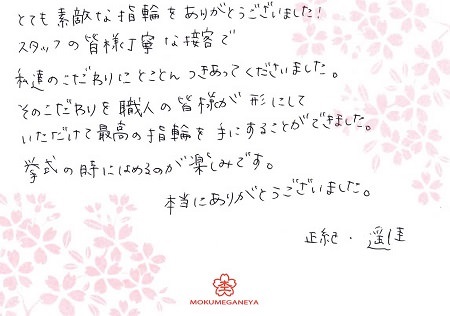 とても素敵な指輪をありがとうございました！
スタッフの皆様丁寧な接客で
私達のこだわりにとことんつきあってくださいました。
そのこだわりを職人の皆様が形にして
いただけて最高の指輪を手にすることができました。
挙式の時にはめるのが楽しみです。
本当にありがとうございました。
正紀・遥佳
MOKUMEGANEYA